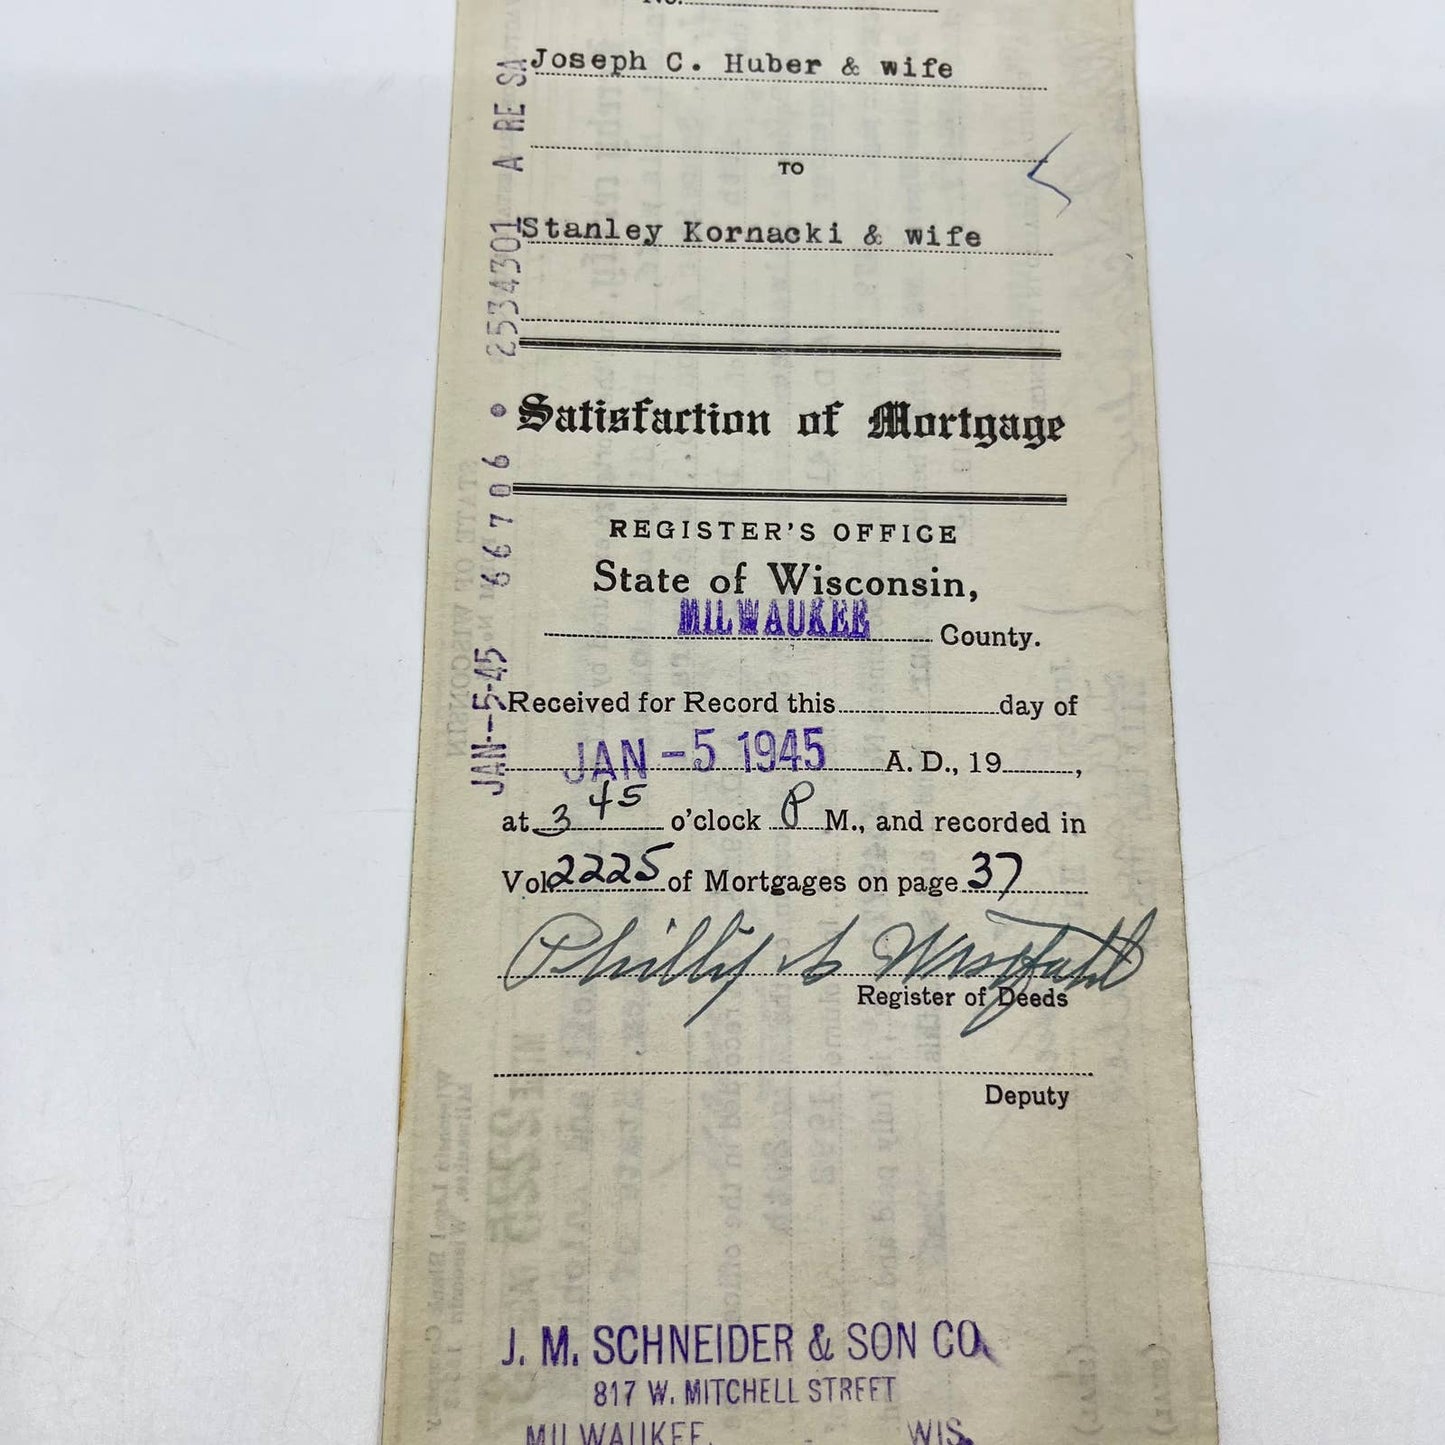 No.
Joseph C. Huber & wife
TO
Stanley Kornacki & wife
Satisfaction of Mortgage
REGISTER'S OFFICE
State of Wisconsin,
MILWAUKEE County.
Received for Record this day of
JAN -5 1945 A. D., 19 ,
at 3 45 o'clock P M., and recorded in
Vol. 2225 of Mortgages on page 37
Phillip C Westfahl
Register of Deeds
Deputy
J. M. SCHNEIDER & SON CO.
817 W. MITCHELL STREET
MILWAUKEE, WIS.
JAN--5-45 66706 • 2534301 A RE SA